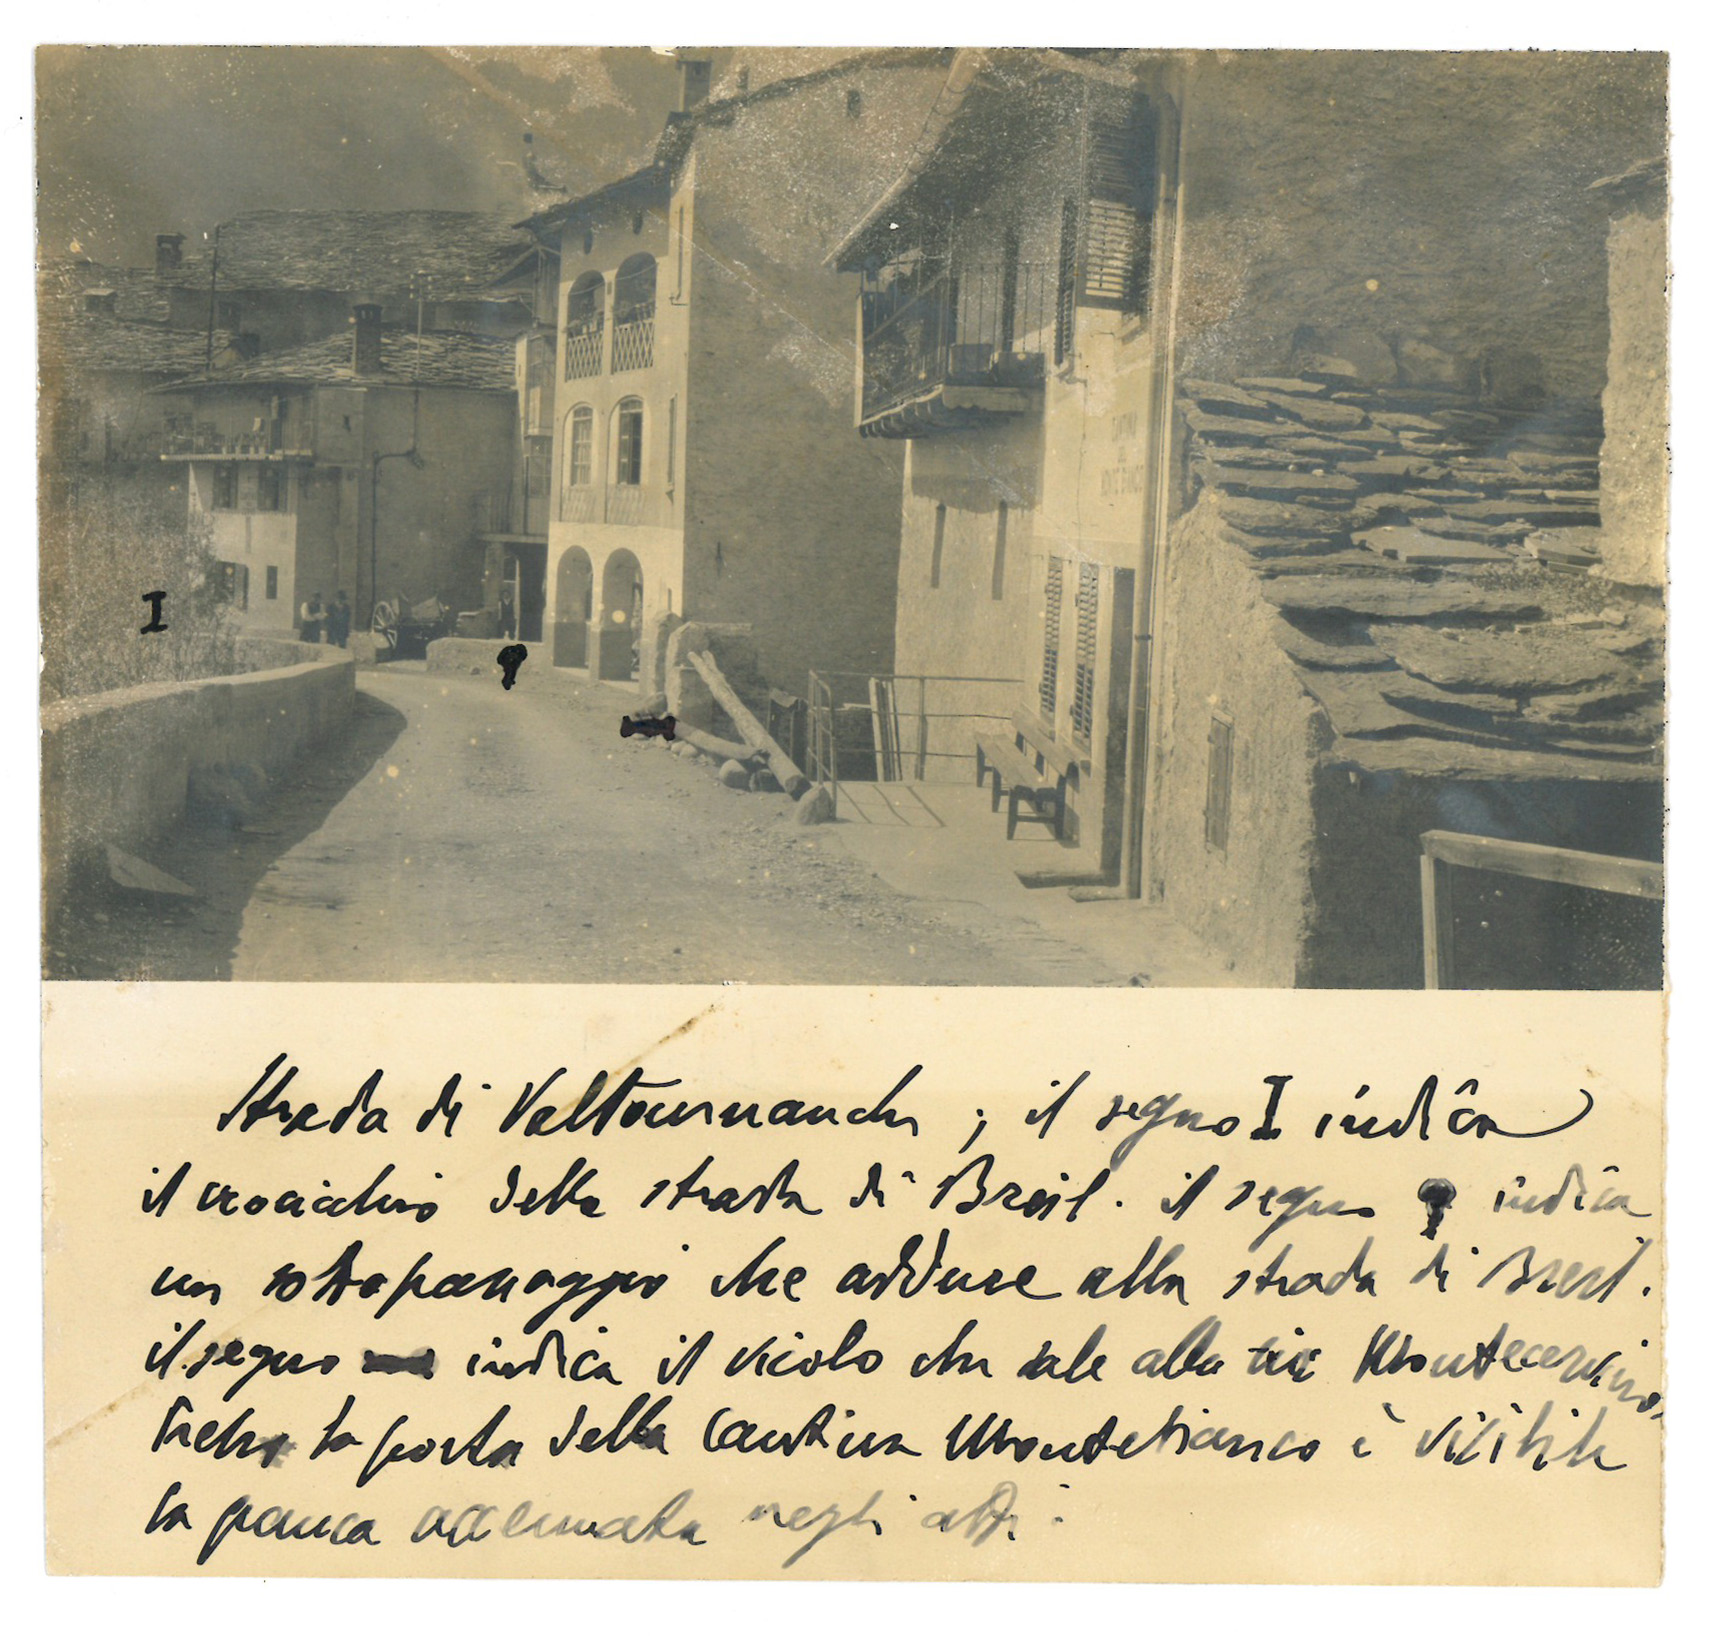 I
Strada di Valtournanche ; il segno I indica
il crocicchio della strada di Breil. il segno indica
un sottopassaggio che adduce alla strada di Breil.
il segno indica il vicolo che sale alla via Montecervino,
la porta della Cantina Montebianco è visibile
la panca accennata negli atti.